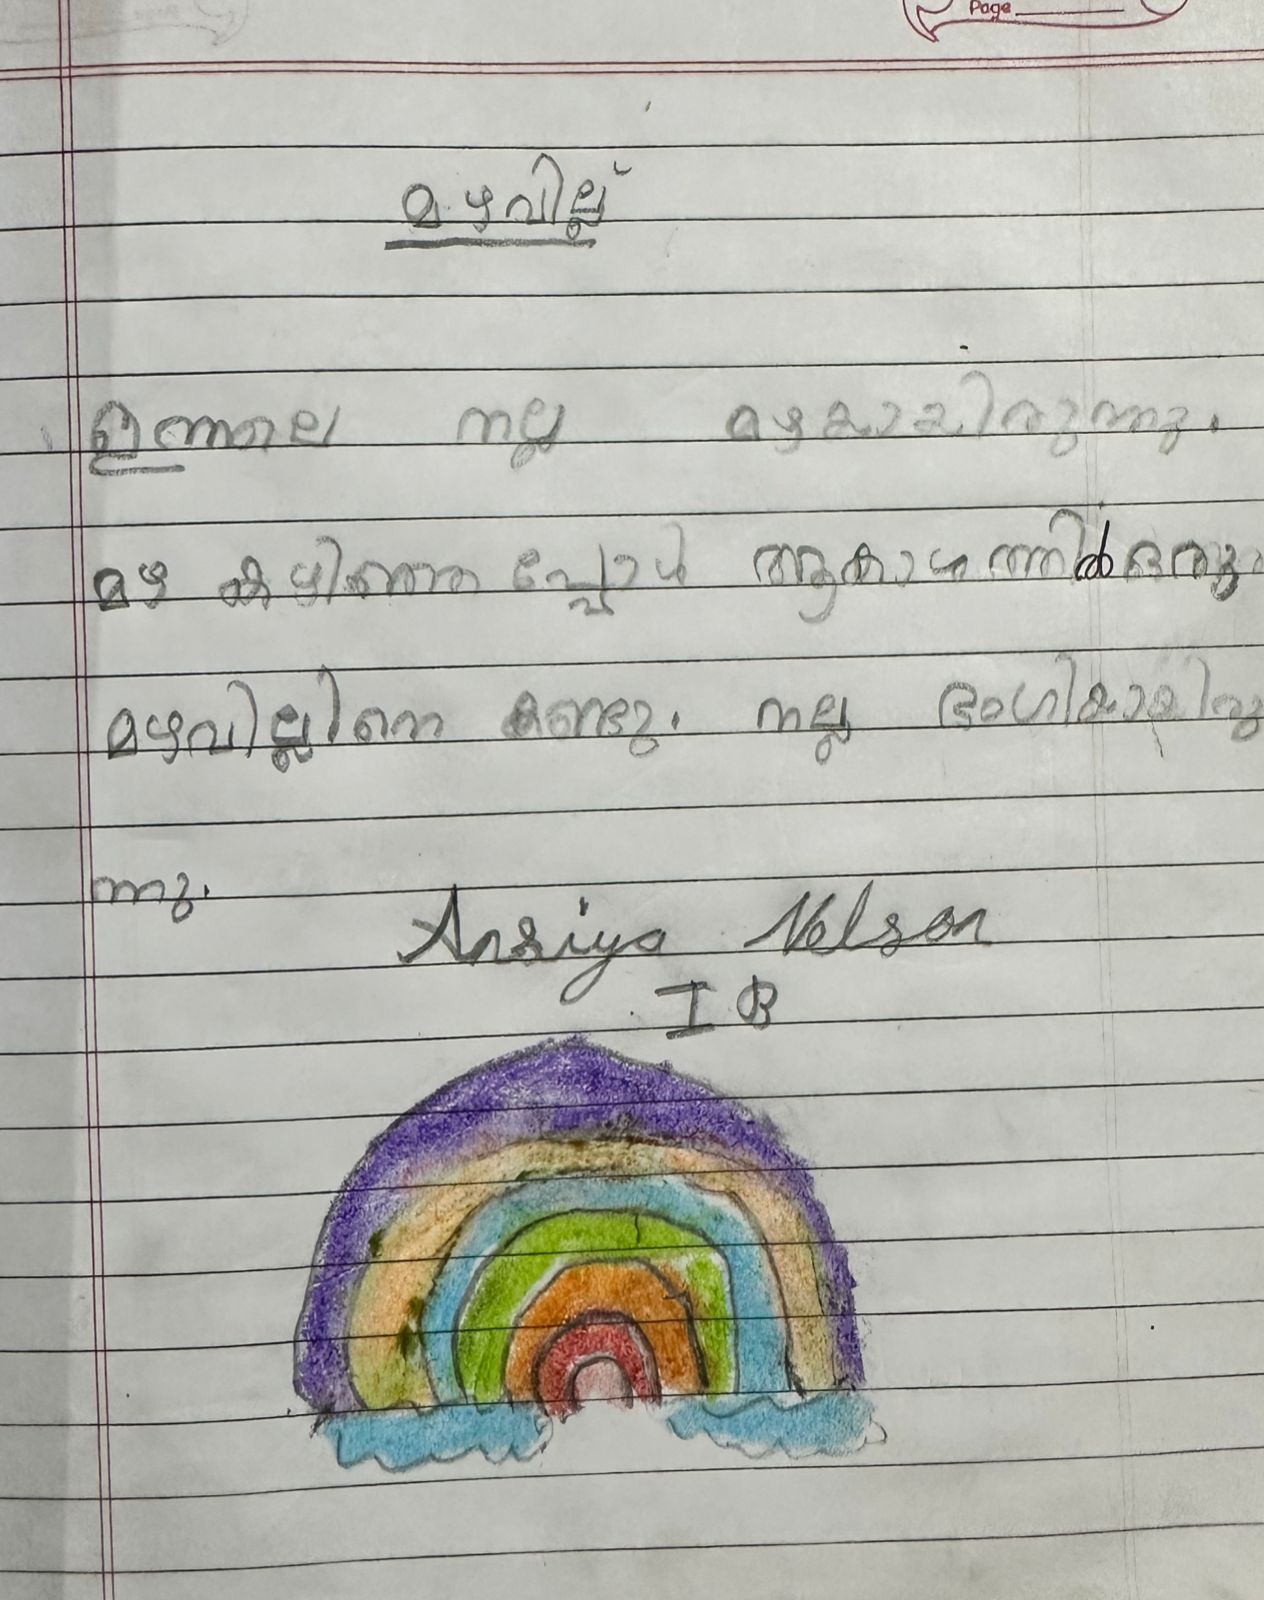 Page
മഴവില്ല്
ഇന്നലെ നല്ല മഴയായിരുന്നു.
മഴ കഴിഞ്ഞപ്പോൾ ആകാശത്തിൽ ഒരു
മഴവില്ലിനെ കണ്ടു. നല്ല ഭംഗിയായിരു
ന്നു.
Ansiya Nelson
I B